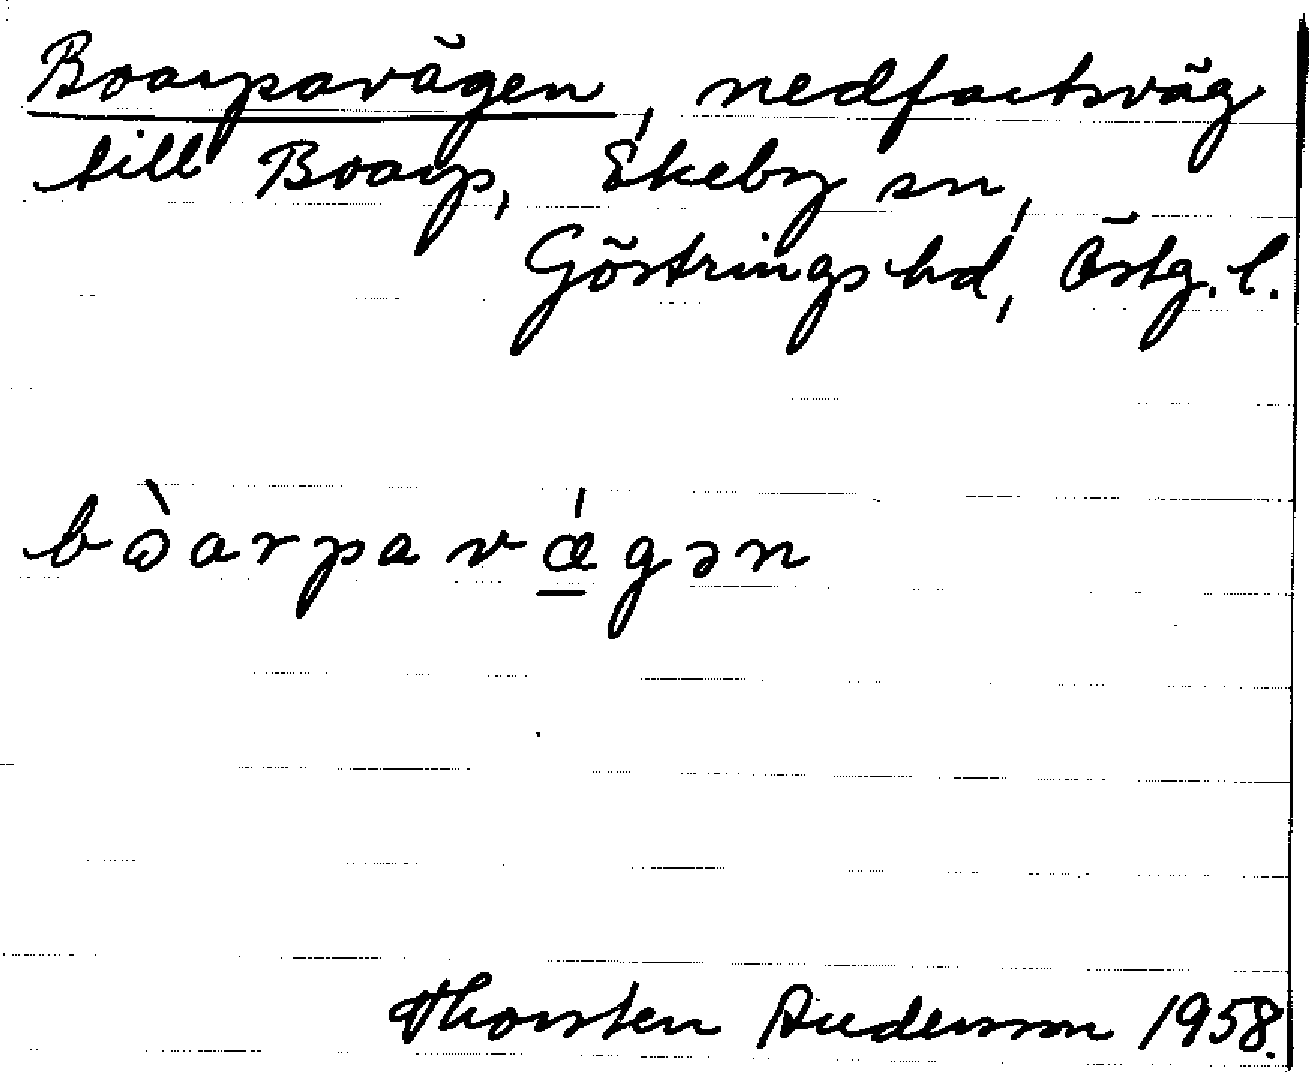 Boarpavägen, nedfartsväg
till Boarp, Ekeby sn,
Göstrings hd, Östg. l.
bɷ̀arpavǽ̲gən
Thorsten Andersson 1958.